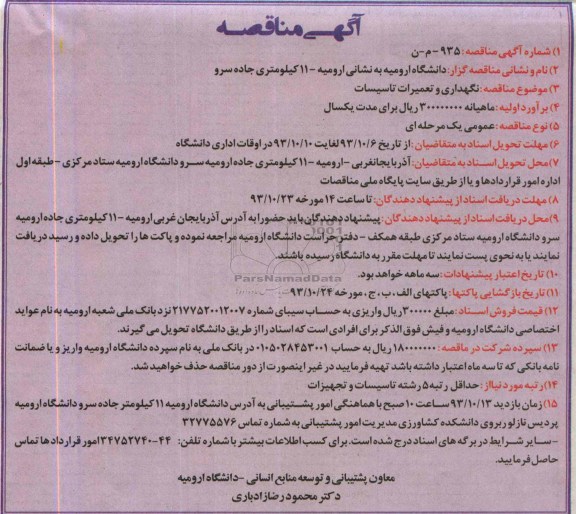 آگهی مناقصه
۱) شماره آگهی مناقصه: ۹۳۵-م-ن
۲) نام و نشانی مناقصه گزار: دانشگاه ارومیه به نشانی ارومیه -۱۱ کیلومتری جاده سرو
۳) موضوع مناقصه: نگهداری و تعمیرات تاسیسات
۴) برآورد اولیه: ماهیانه ۳۰۰۰۰۰۰۰۰ ریال برای مدت یکسال
۵) نوع مناقصه: عمومی یک مرحله ای
۶) مهلت تحویل اسناد به متقاضیان: از تاریخ ۹۳/۱۰/۶ لغایت ۹۳/۱۰/۱۰ در اوقات اداری دانشگاه
۷) محل تحویل اسناد به متقاضیان: آذربایجانغربی -ارومیه -۱۱ کیلومتری جاده ارومیه سرو دانشگاه ارومیه ستاد مرکزی -طبقه اول
اداره امور قراردادها و یا از طریق سایت پایگاه ملی مناقصات
۸) مهلت دریافت اسناد از پیشنهاد دهندگان: تا ساعت ۱۴ مورخه ۹۳/۱۰/۲۳
۹) محل دریافت اسناد از پیشنهاد دهندگان: پیشنهاد دهندگان باید حضورا به آدرس آذربایجان غربی ارومیه -۱۱ کیلومتری جاده ارومیه
سرو دانشگاه ارومیه ستاد مرکزی طبقه همکف -دفتر حراست دانشگاه ارومیه مراجعه نموده و پاکت ها را تحویل داده و رسید دریافت
نمایند یا به نحوی پست نمایند تا مهلت مقرر به دانشگاه رسیده باشند.
ParsNamadData
۱۰) تاریخ اعتبار پیشنهادات: سه ماهه خواهد بود.
۱۱) تاریخ بازگشایی پاکتها: پاکتهای الف، ب، ج، مورخه ۹۳/۱۰/۲۴
۱۲) قیمت فروش اسناد: مبلغ ۳۰۰۰۰۰ ریال واریزی به حساب سیبای شماره ۲۱۷۷۵۲۰۰۱۲۰۰۷ نزد بانک ملی شعبه ارومیه به نام عواید
اختصاصی دانشگاه ارومیه و فیش فوق الذکر برای افرادی است که اسناد را از طریق دانشگاه تحویل می گیرند.
۱۳) سپرده شرکت در مناقصه: ۱۸۰۰۰۰۰۰۰ ریال به حساب ۰۱۰۵۰۲۸۴۵۳۰۰۱ در بانک ملی به نام سپرده دانشگاه ارومیه واریز و یا ضمانت
نامه بانکی که تا سه ماه اعتبار داشته باشد تهیه فرمایید در غیر اینصورت از دور مناقصه حذف خواهید شد.
۱۴) رتبه مورد نیاز: حداقل رتبه ۵ رشته تاسیسات و تجهیزات
۱۵) زمان بازدید ۹۳/۱۰/۱۳ ساعت ۱۰ صبح با هماهنگی امور پشتیبانی به آدرس دانشگاه ارومیه ۱۱ کیلومتر جاده سرو دانشگاه ارومیه
پردیس نازلو روبروی دانشکده کشاورزی مدیریت امور پشتیبانی به شماره تماس ۳۲۷۷۵۵۷۶
-سایر شرایط در برگه های اسناد درج شده است. برای کسب اطلاعات بیشتر با شماره تلفن: ۴۴-۳۴۷۵۲۷۴۰ امور قراردادها تماس
حاصل فرمایید.
معاون پشتیبانی و توسعه منابع انسانی -دانشگاه ارومیه
دکتر محمود رضازادباری